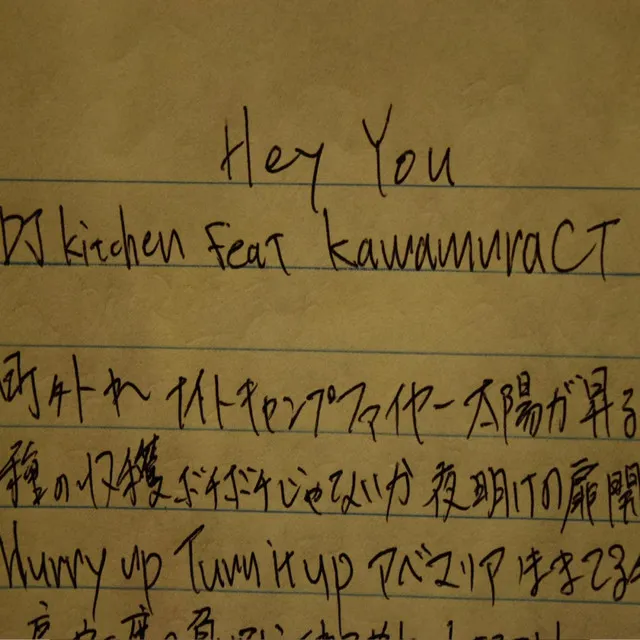 Hey You
DJ kitchen feat kawamuraCT
町外れ ナイトキャンプファイヤー 太陽が昇る
種の収穫 ボチボチじゃないか 夜明けの扉開
Hurry up Turn it up アベマリア まるまてる